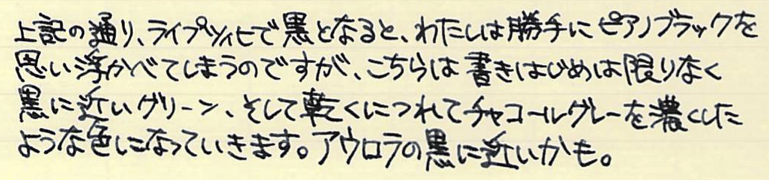 上記の通り、ライプツィヒで黒となると、わたしは勝手にピアノブラックを
思い浮かべてしまうのですが、こちらは書きはじめは限りなく
黒に近いグリーン、そして乾くにつれてチャコールグレーを濃くした
ような色になっていきます。アウロラの黒に近いかも。